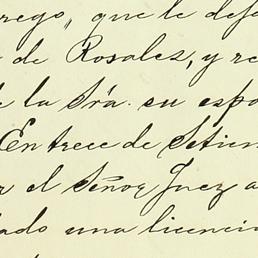 rego, que le defa
de Rosalez, y re
de la Sra. su espo
En trece de Setien
el Señor Juez a
ado una licencia